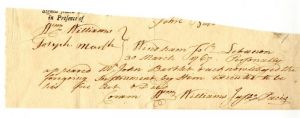 in Presence of
Wm Williams
Joseph Marsh
Windham ss Lebanon
20 March 1767 Personally
appeared Mr John Bartlet and acknowledged the
foregoing Instrument by Him executed to be
his free Act & Deed
Coram Wm Williams Just Pacis